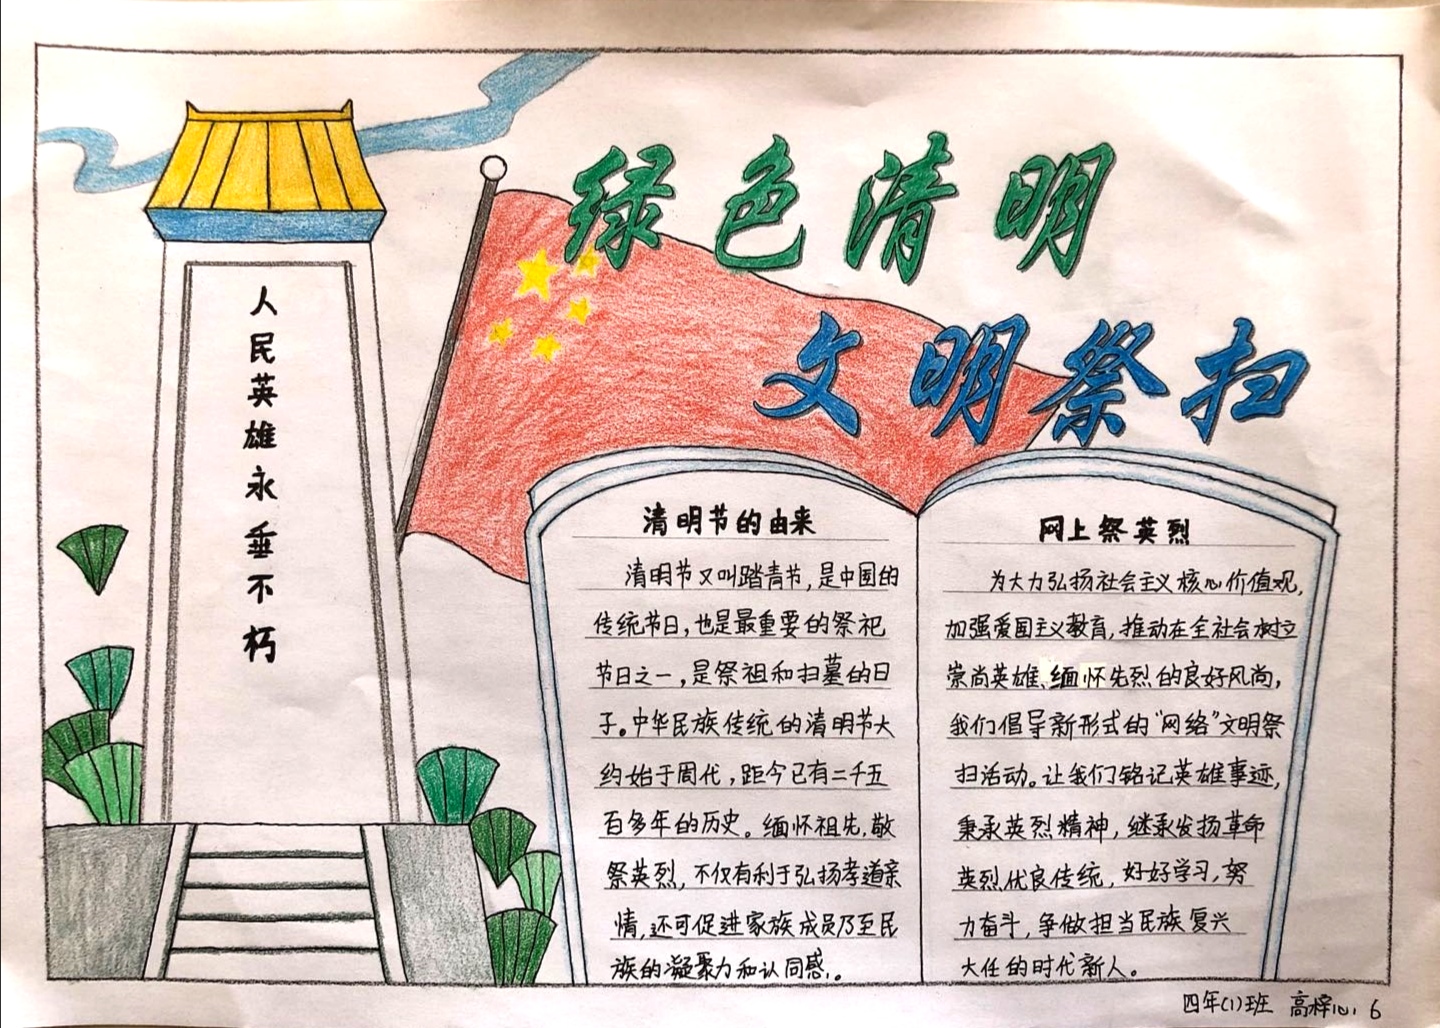 绿色清明
文明祭扫
人民英雄永垂不朽
清明节的由来
清明节又叫踏青节，是中国的
传统节日，也是最重要的祭祀
节日之一，是祭祖和扫墓的日
子。中华民族传统的清明节大
约始于周代，距今已有二千五
百多年的历史。缅怀祖先，敬
祭英烈，不仅有利于弘扬孝道亲
情，还可促进家族成员乃至民
族的凝聚力和认同感。
网上祭英烈
为大力弘扬社会主义核心价值观，
加强爱国主义教育，推动在全社会树立
崇尚英雄、缅怀先烈的良好风尚，
我们倡导新形式的“网络”文明祭
扫活动。让我们铭记英雄事迹，
秉承英烈精神，继承发扬革命
英烈优良传统，好好学习，努
力奋斗，争做担当民族复兴
大任的时代新人。
四年(1)班 高梓心 6